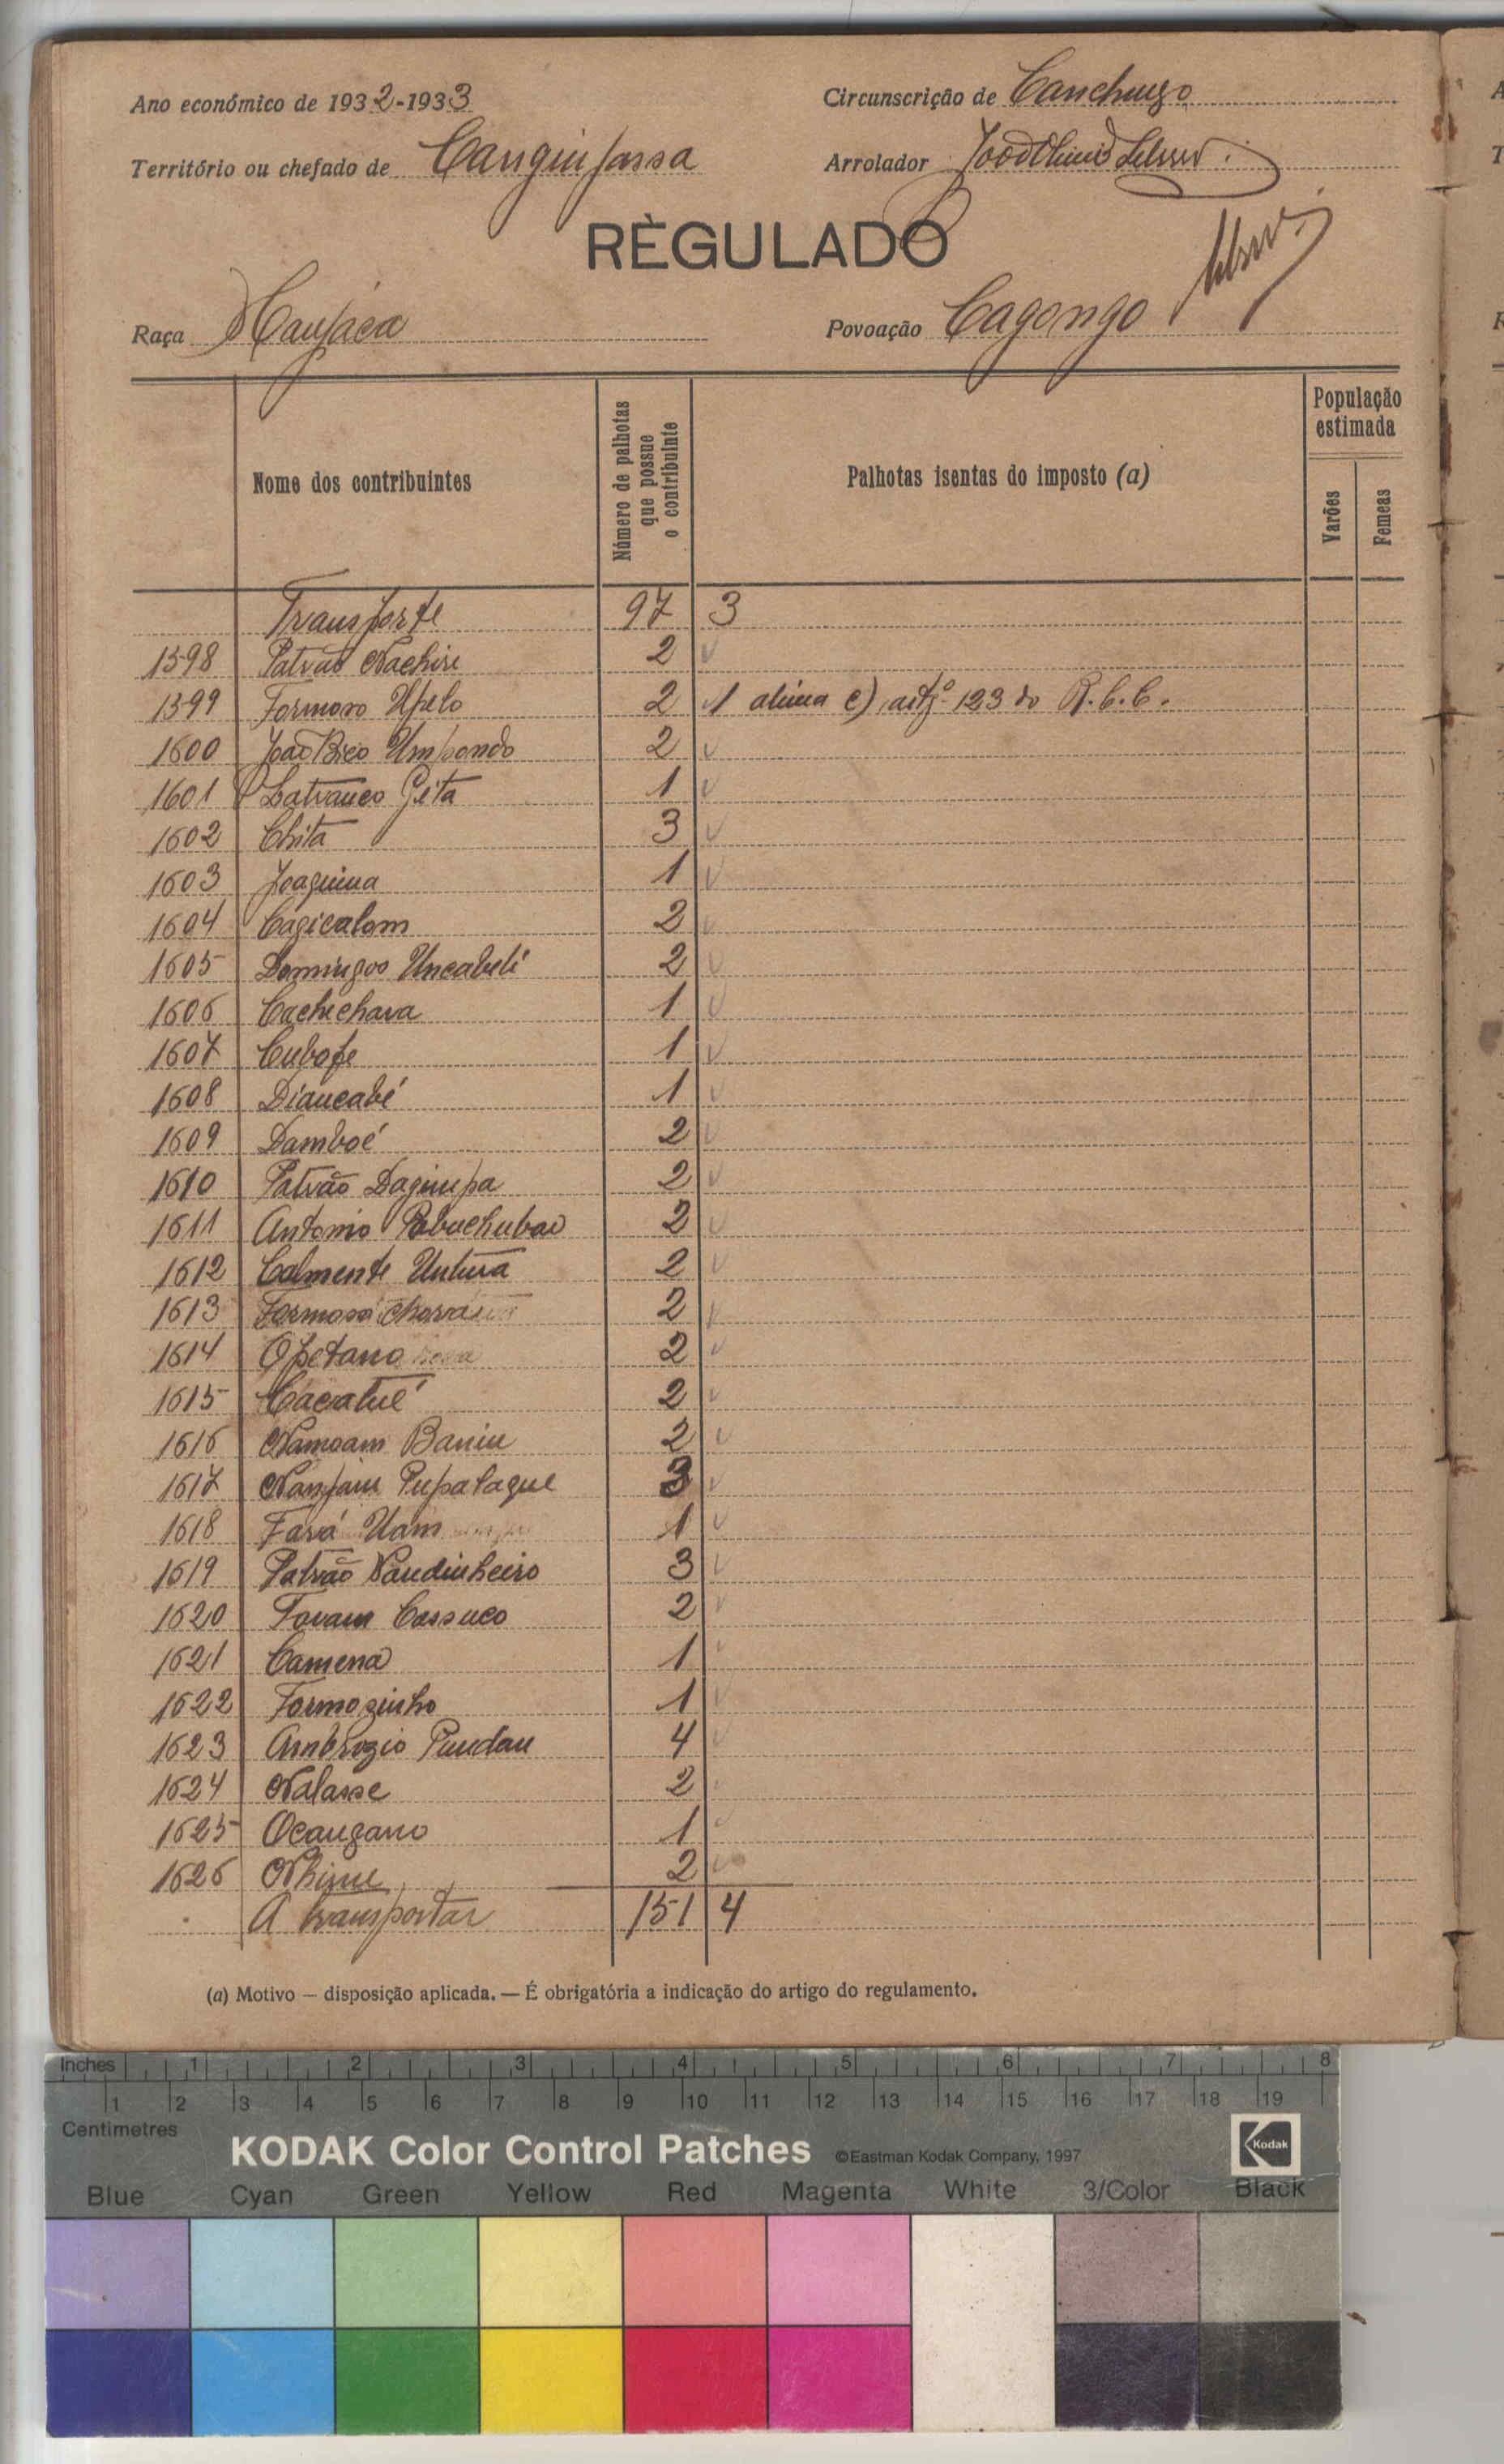 Ano económico de 1932-1933 Circunscrição de Canchungo
Território ou chefado de Canguinjassa Arrolador
RÈGULADO
Raça Manjáca Povoação Cagongo
Nome dos contribuintes
Número de palhotas que possue o contribuinte
Palhotas isentas do imposto (a)
População estimada
Varões
Femeas
Transporte 97 3
1598 Patrão Nachire 2
1599 Formoso Upelo 2 1 alinea c) artgº 123 do R.C.C.
1600 João Bico Umpondo 2
1601 Latranco Gita 1
1602 Chita 3
1603 Joaquina 1
1604 Cagicalom 2
1605 Domingos Uncabeli 2
1606 Cachichava 1
1607 Cubofe 1
1608 Diancabé 1
1609 Damboé 2
1610 Patrão Daguinpa 2
1611 Antonio 2
1612 Calmente Untura 2
1613 Formoso 2
1614 Opetano 2
1615 Cacatué 2
1616 Namoam Baniu 2
1617 Nanjam Pupalaque 3
1618 Fará Uam 1
1619 Patrão Nandinheiro 3
1620 Tovam Cassuco 2
1621 Camena 1
1622 Formozinho 1
1623 Ambrozio Pundau 4
1624 Nalasse 2
1625 Ocangano 1
1626 Nhime 2
A transportar 151 4
(a) Motivo — disposição aplicada. — É obrigatória a indicação do artigo do regulamento.
Inches 1 2 3 4 5 6 7 8
1 2 3 4 5 6 7 8 9 10 11 12 13 14 15 16 17 18 19
Centimetres
KODAK Color Control Patches ©Eastman Kodak Company, 1997 Kodak
Blue Cyan Green Yellow Red Magenta White 3/Color Black